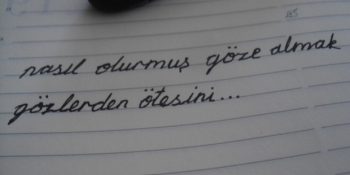 nasıl olurmuş göze almak
gözlerden ötesini...